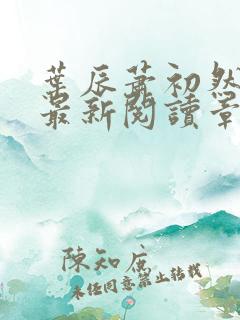 葉辰蕭初然
最新閱讀章
陳知庶
未經同意禁止轉載